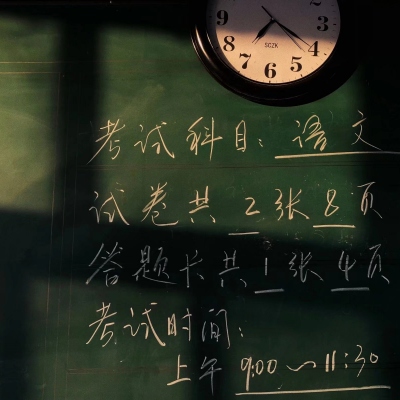 9 8 7 6 5 4 3
SCZK
考试科目：语文
试卷共2张8页
答题卡共1张4页
考试时间：
上午 9:00～11:30